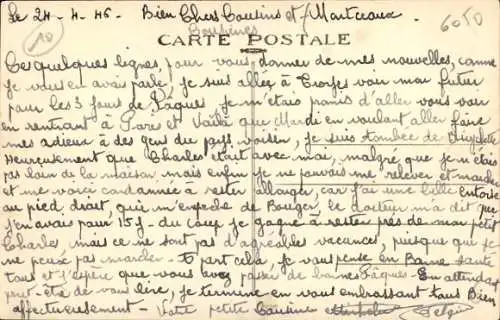 Le 24-4-46. Bien Chers Cousins et
Cousines
10
6050
CARTE POSTALE
Ces quelques lignes, pour vous donner de mes nouvelles, comme
je vous en avais parlé, je suis allée à voir mon futur
pour les 3 jours de Pâques je m'étais promis d'aller vous voir
en rentrant à Paris et voilà que Mardi en voulant aller faire
mes adieux à des gens du pays voisin, je suis tombée de
Heureusement que Charles était avec moi, malgré que je n'étais
pas loin de la maison mais enfin je ne pouvais me relever et marcher
et me voici condamnée à rester allonger, car j'ai une belle entorse
au pied droit, qui m'empêche de bouger, le docteur m'a dit que
j'en avais pour 15 j - du coup je gagne à rester près de mon petit
Charles, mais ce ne sont pas d'agréables vacances, puisque je
ne peux pas marcher - à part cela, je vous pense en Bonne santé
tous et j'espère que vous avez passé de bonnes Pâques - En attendant
peut-être de vous lire, je termine en vous embrassant tous Bien
affectueusement - Votre petite Cousine